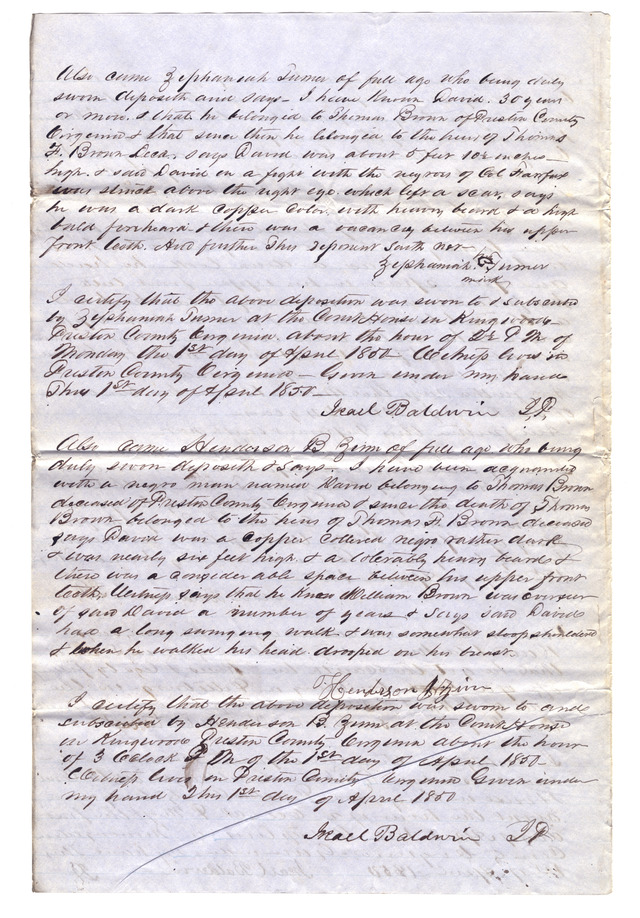 Also came Zephaniah Turner of full age who being duly
sworn deposith and says – I have Known David. 30 years
or more, & that he belonged to Thomas Brown of Preston County
Virginia & that since then he belonged to the heirs of Thomas
F. Brown Decd, says David was about 5 feet 10½ inches –
high. & said David in a fight with the negroes of Col Fairfax
was struck above the right eye. which left a scar, says
he was a dark copper color, with heavy beard & a high
bald forehead & there was a vacancy between his upper
front teeth. And further This deponent saith not –
Zephaniah Turner
mark
I certify that the above deposition was sworn to & subscribed
by Zephaniah Turner at the Court House in Kingwood
Preston County Virginia. about the hour of P M of
Monday the 1st day of April 1850 – Witness lives in
Preston County Virginia – Given under my hand
This 1st day of April 1850 –
Israel Baldwin J.P.
Also came Henderson B Zinn of full age who being
duly sworn deposith & says. I have been acquainted
with a negro man named David belonging to Thomas Brown
deceased of Preston County Virginia & since the death of Thomas
Brown belonged to the heirs of Thomas F. Brown deceased
says David was a copper collered negro rather dark
& was nearly six feet high, & a tolerably heavy beard &
there was a considerable space between his upper front
teeth, Witness says that he knew William Brown was overseer
of said David a number of years & says said David
had a long swinging walk & was somewhat stoop shouldered
& when he walked his head drooped on his breast
Henderson B Zinn
I certify that the above deposition was sworn to and
subscribed by Henderson B Zinn at the Court House
in Kingwood Preston County Virginia about the hour
of 3 OClock P M of the 1st day of April 1850 –
Witness lives in Preston County Virginia Given under
my hand This 1st day of April 1850
Israel Baldwin J.P.